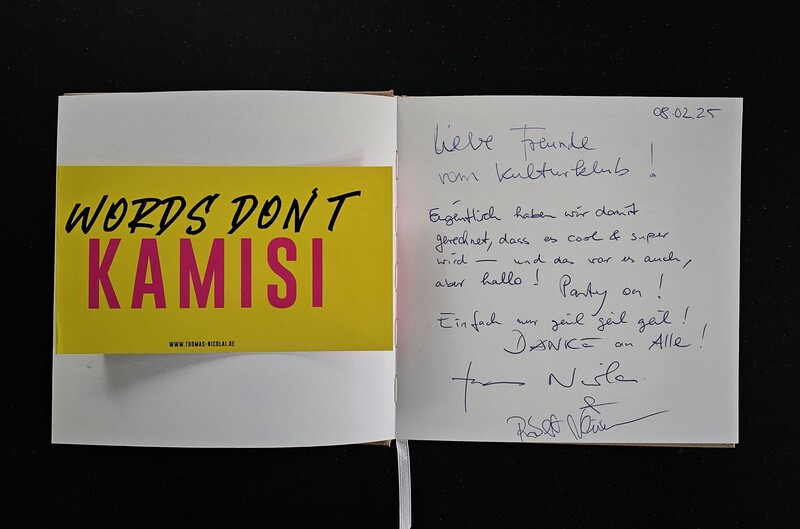 WORDS DON'T
KAMISI
WWW.THOMAS-NICOLAI.DE
08.02.25
Liebe Freunde
vom Kulturklub!
Eigentlich haben wir damit
gerechnet, dass es cool & super
wird — und das war es auch,
aber hallo! Party on!
Einfach nur geil geil geil!
DANKE an Alle!
&
Robert